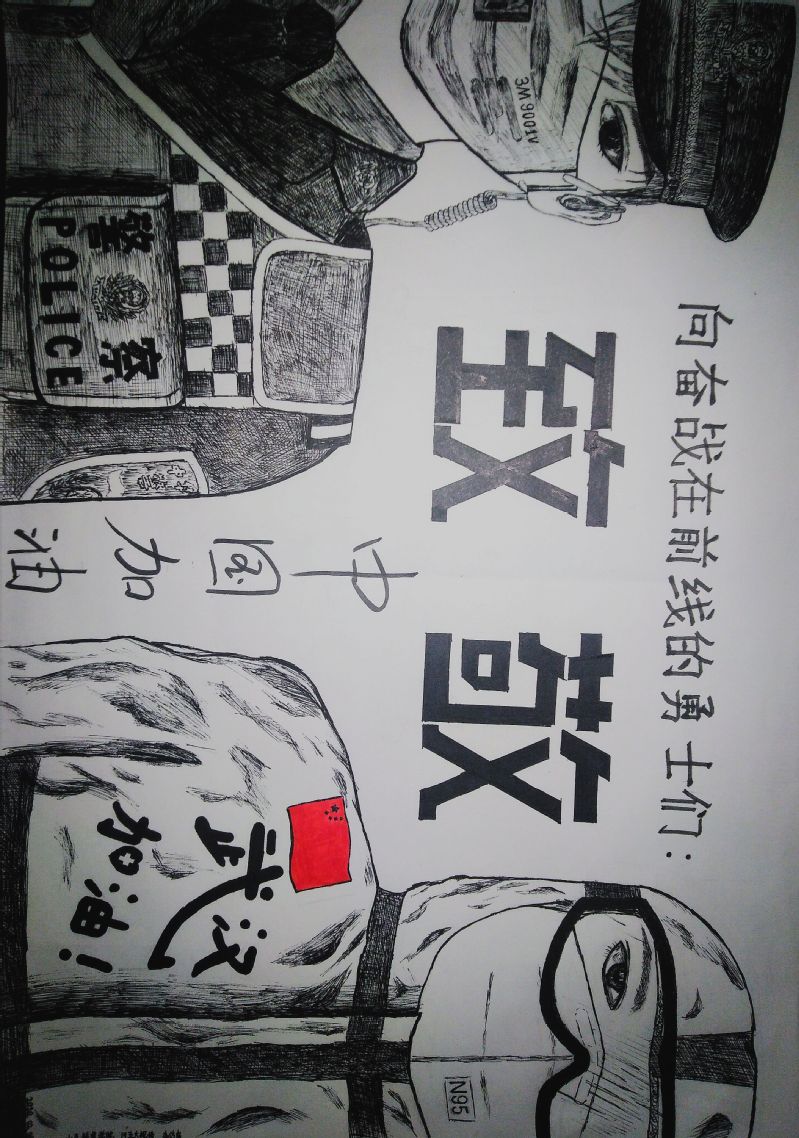 向奋战在前线的勇士们：
致敬
3M 9001V
警察
POLICE
中国加油
武汉
加油！
N95